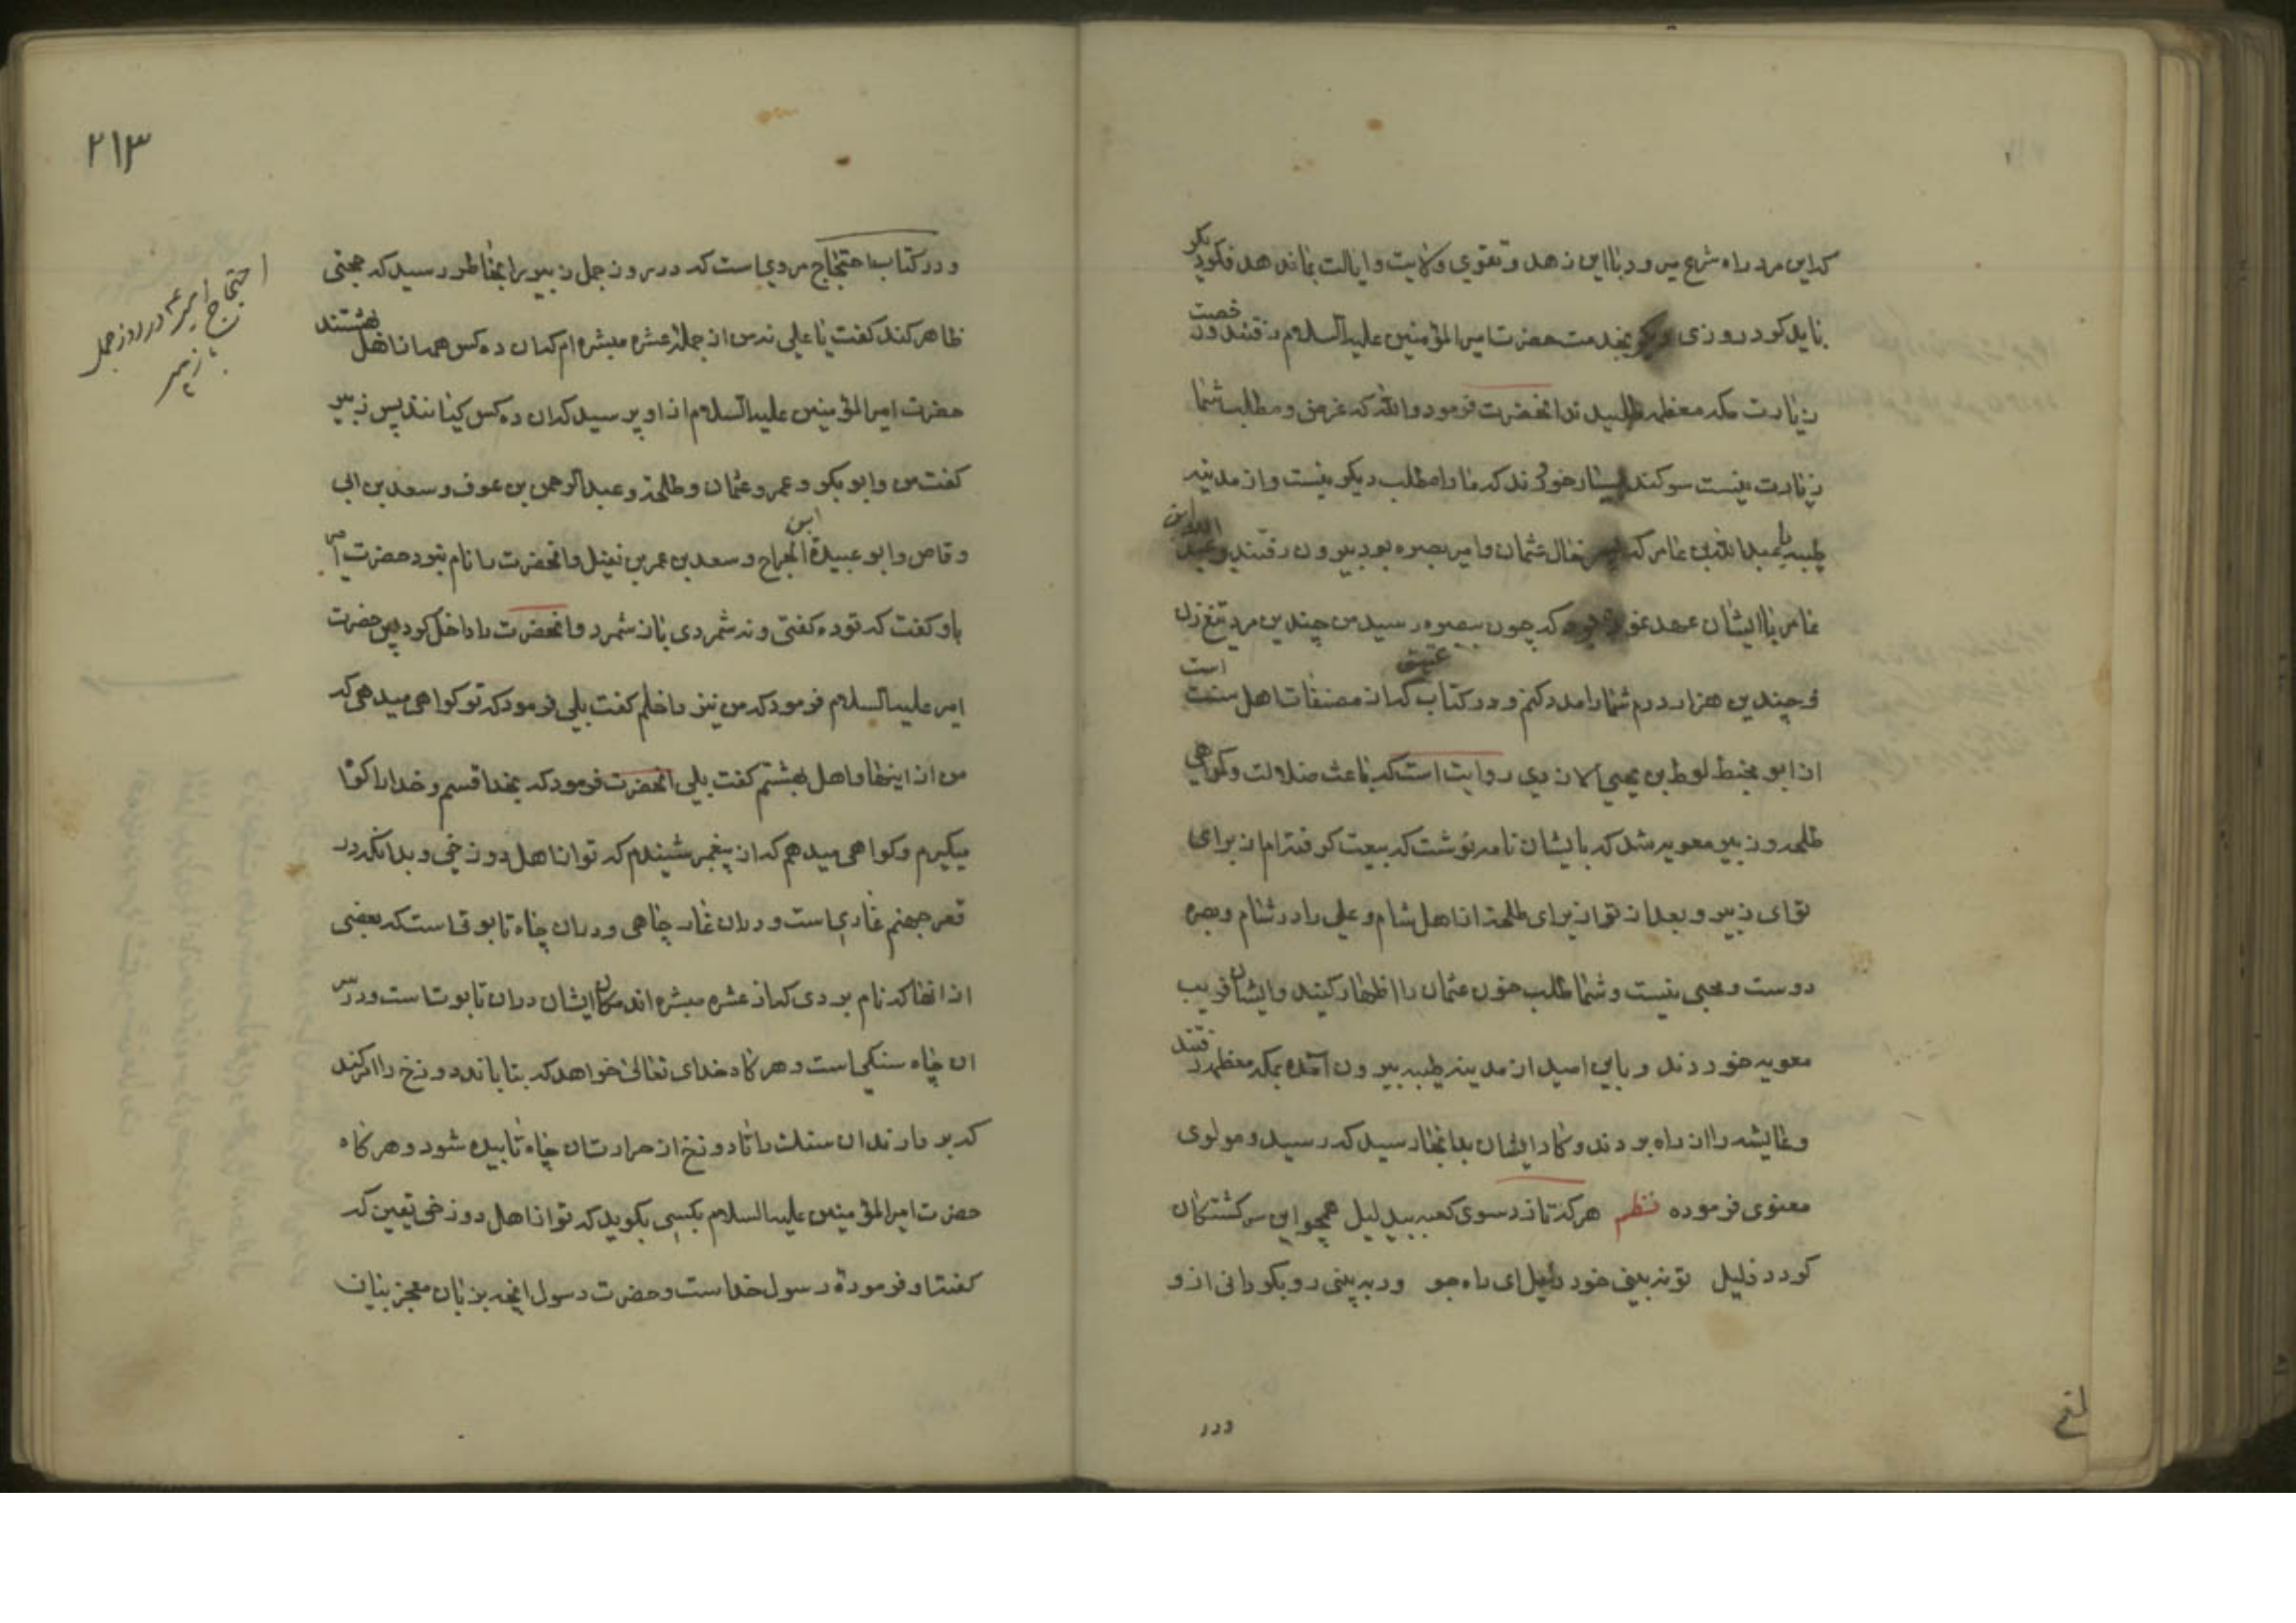 که این مرد راه شرع میرود با این زهد و تقوی ولایت و ایالت بما ندهد فکر دیگر
باید کرد روزی بخدمت حضرت امیر المؤمنین علیه السلام رفتند و رخصت
زیارت مکه معظمه طلبیدند انحضرت فرمود والله که غرض و مطلب شما
زیارت نیست سوکند بسیار خوردند که ما را مطلب دیکر نیست و از مدینه
طیبه با عبدالله بن عامر که پسر خال عثمان و امیر بصره بود بیرون رفتند و عبد الله ابن
عامر با ایشان عهد نمود که چون ببصره رسید من چندین مرد تیغ زن
و چندین هزار درم شما را مدد کنم و در کتاب عتیق که از مصنفات اهل سنت است
از ابو مخنط لوط بن یحیی الازدی روایت است که باعث ضلالت و کمراهی
طلحه و زبیر معویه شد که بایشان نامه نوشت که بیعت کرفته ام از برای
تو ای زبیر و بعد از تو از برای طلحه از اهل شام و علی را در شام و بصره
دوست و محبی نیست و شما طلب خون عثمان را اظهار کنید و ایشان فریب
معویه خوردند و باین امید از مدینه طیبه بیرون آمده بمکه معظمه رفتند
و عایشه را از راه بردند و کار ایشان بدانجا رسید که رسید و مولوی
معنوی فرموده نظم هر که تازد سوی کعبه بیدلیل همچو این سرکشتکان
کردد ذلیل تو نه بینی خود دلیل ای راه جو ور به بینی رو بکردانی ازو
ودر
۲۱۳
احتجاج امیر ع در روز جمل
با زبیر
و در کتاب احتجاج مرویست که در روز جمل زبیر را بخاطر رسید که حجتی
ظاهر کند کفت یا علی نه من از جمله عشره مبشره ام که ان ده کس همه از اهل بهشتند
حضرت امیر المؤمنین علیه السلام از او پرسید که ان ده کس کیانند پس زبیر
کفت من و ابو بکر و عمر و عثمان و طلحة و عبد الرحمن بن عوف و سعد بن ابی
وقاص و ابو عبیدة ابن الجراح و سعد بن عمر بن نفیل و انحضرت را نام نبرد حضرت امیر
باو کفت که تو ده کفتی و نه شمردی باز شمرد و انحضرت را داخل کرد پس حضرت
امیر علیه السلام فرمود که من نیز داخلم کفت بلی فرمود که تو کواهی میدهی که
من از اینها و اهل بهشتم کفت بلی انحضرت فرمود که بخدا قسم و خدا را کواه
میکیرم و کواهی میدهم که از پیغمبر شنیدم که تو از اهل دوزخی و بدانکه در
قعر جهنم غاری است و دران غار چاهی و دران چاه تابوتست که بعضی
از انها که نام بردی که از عشره مبشره اند مکان ایشان دران تابوتست و در سر
ان چاه سنکی است و هر کاه خدای تعالی خواهد که بتاباند دوزخ را امر کند
که بردارند ان سنک را تا دوزخ از حرارت ان چاه تابیده شود و هر کاه
حضرت امیر المؤمنین علیه السلام بکسی بکوید که تو از اهل دوزخی یقین که
کفته او فرموده رسول خداست و حضرت رسول انچه بزبان معجز بیان